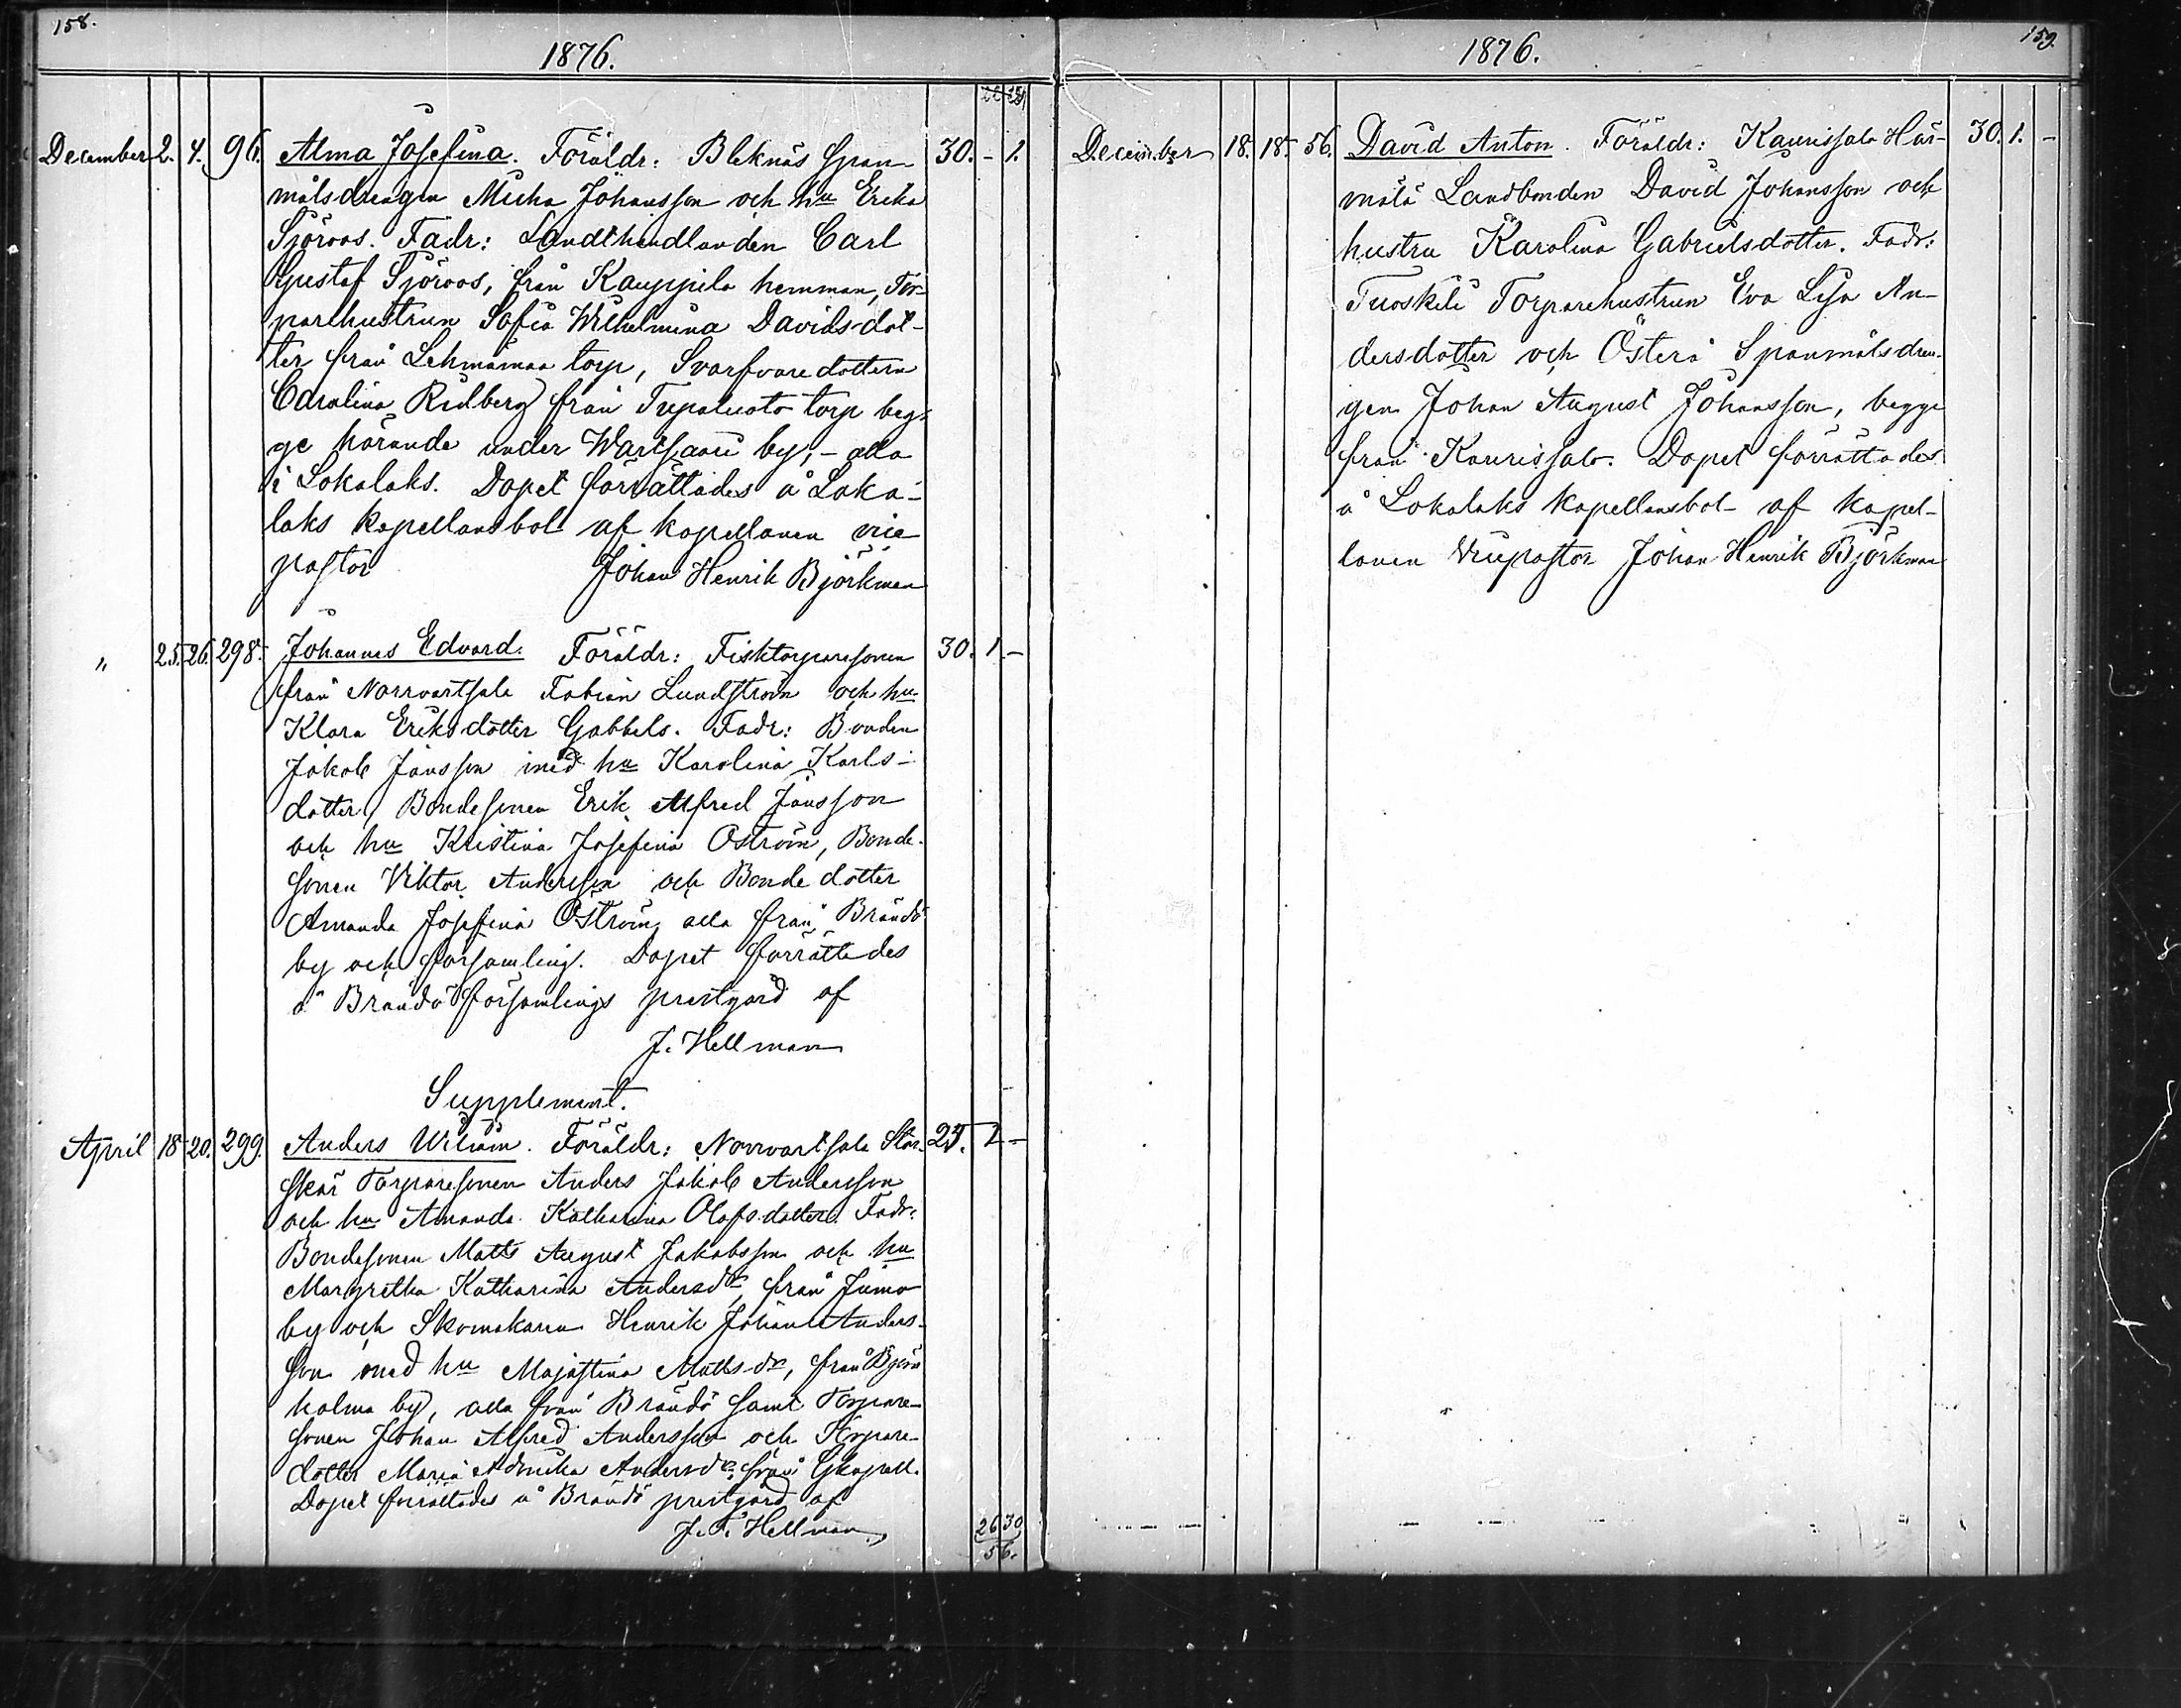 158.
1876.
December 2. 4. 96. Alma Josefina. Föräldr: Bleknäs Span- 30. - 1.
målsdrengen Micha Johansson och hu Erika
Sjöroos. Fadr: Landthandlanden Carl
Gustaf Sjöroos, från Kauppila hemman, Tor-
parehustrun Sofia Wilhelmina Davidsdot-
ter från Lehmämaa torp, Svarfvaredottern
Carolina Ridberg från Tupaluoto torp beg-
ge hörande under Wartsaari by, - alla
i Lokalaks. Dopet förrättades å Loka-
laks kapellansbol af kapellanen vice
pastor Johan Henrik Björkman
" 25. 26. 298. Johannes Edvard. Föräldr: Fisktorparesonen 30. 1. -
från Norrvartsala Fabian Lundström och hu
Klara Eriksdotter Gabbels. Fadr: Bonden
Jakob Jansson med hu Karolina Karls-
dotter, Bondesonen Erik Alfred Jansson
och hu Kristina Josefina Öström, Bonde-
sonen Viktor Andersson och Bonde dotter
Amanda Josefina Öström, alla från Brändö
by och församling. Dopet förrättades
å Brändö församlings prestgård af
J. Hellman
Supplement.
April 18 20. 299. Anders Wiliam. Föräldr: Norrvartsala Stor- 25. 1 -
skär Torparesonen Anders Jakob Andersson
och hu Amanda Katharina Olofsdotter. Fadr:
Bondesonen Matts August Jakobsson och hu
Margretha Katharina Andersdr, från Jurmo
by och Skomakaren Henrik Johan Anders-
son med hu Majastina Mattsdr, från Björn
holma by, alla från Brändö samt Torpare-
sonen Johan Alfred Andersson och Torpare-
dotter Maria Andersdr, från Gkapell.
Dopet förrättades å Brändö prestgård af
J. F. Hellman
26 30
56.
159.
1876.
December 18. 18. 56. David Anton. Föräldr: Kaurissalo Här- 30. 1. -
mälä Landbonden David Johansson och
hustru Karolina Gabrielsdotter. Fadr:
Tuoskeli Torparehustrun Eva Lisa An-
dersdotter och Österå Spanmålsdren-
gen Johan August Johansson, begge
från Kaurissalo. Dopet förrättades
å Lokalaks kapellansbol af kapel-
lanen Vicepastor Johan Henrik Björkman